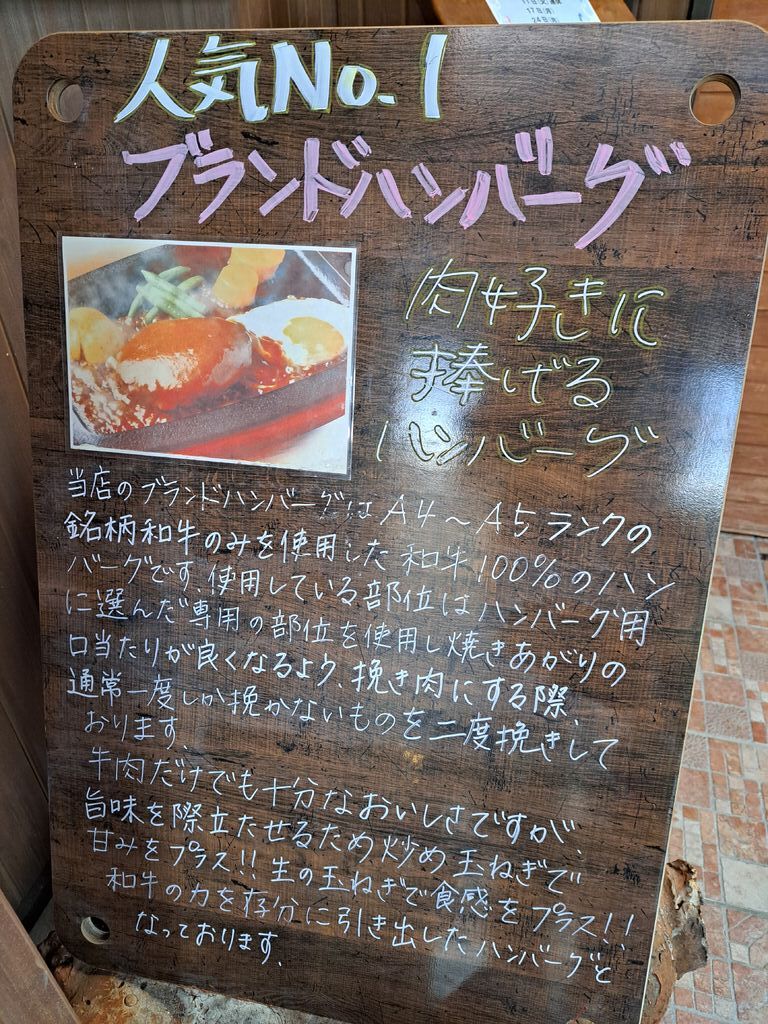 17日(月)
24日(月)
人気No.1
ブランドハンバーグ
肉好きに
捧げる
ハンバーグ
当店のブランドハンバーグはA4〜A5ランクの
銘柄和牛のみを使用した和牛100%のハン
バーグです、使用している部位はハンバーグ用
に選んだ専用の部位を使用し焼きあがりの
口当たりが良くなるよう、挽き肉にする際、
通常一度しか挽かないものを二度挽きして
おります、
牛肉だけでも十分なおいしさですが、
旨味を際立たせるため炒め玉ねぎで
甘みをプラス!!生の玉ねぎで食感をプラス!!
和牛の力を存分に引き出したハンバーグと
なっております、